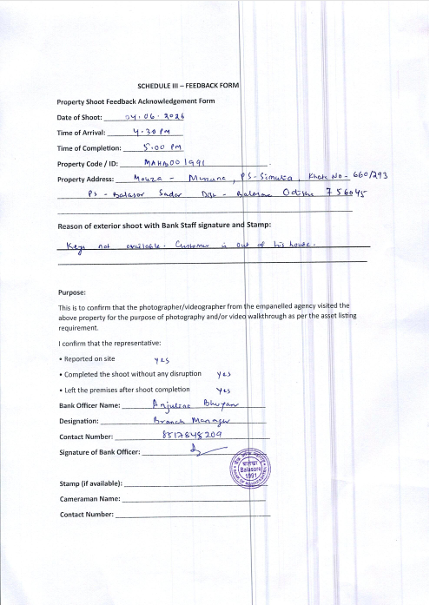 SCHEDULE III – FEEDBACK FORM
Property Shoot Feedback Acknowledgement Form
Date of Shoot: 04.06.2026
Time of Arrival: 4.30 PM
Time of Completion: 5.00 PM
Property Code / ID: MAHB001991
Property Address: Mouza - , PS-Simulia, Khata No- 660/293
Ps - Balasor Sadar Dist - Balasore Odisha 756045
Reason of exterior shoot with Bank Staff signature and Stamp:
Key not available. Customer is out of his house.
Purpose:
This is to confirm that the photographer/videographer from the empanelled agency visited the
above property for the purpose of photography and/or video walkthrough as per the asset listing
requirement.
I confirm that the representative:
• Reported on site yes
• Completed the shoot without any disruption yes
• Left the premises after shoot completion yes
Bank Officer Name: Bhuyan
Designation: Branch Manager
Contact Number: 8517848209
Signature of Bank Officer:
Balasore
1991
Stamp (if available):
Cameraman Name:
Contact Number: